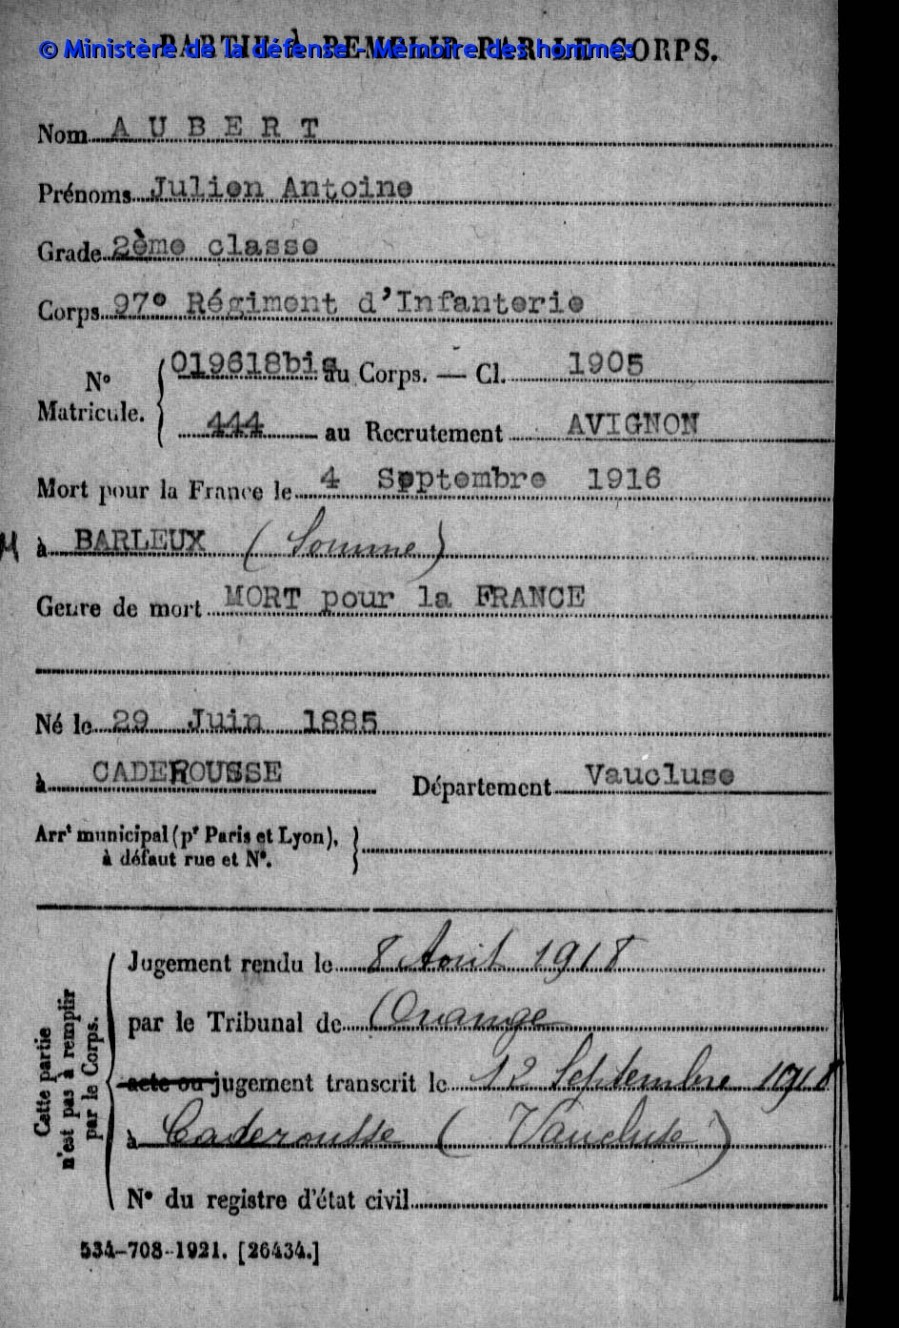 © Ministère de la défense - Mémoire des hommes
PARTIE À REMPLIR PAR LE CORPS.
Nom AUBERT
Prénoms Julien Antoine
Grade 2ème classe
Corps 97e Régiment d'Infanterie
N° Matricule. 019618bis au Corps. — Cl. 1905
444 au Recrutement AVIGNON
Mort pour la France le 4 Septembre 1916
à BARLEUX (Somme)
Genre de mort MORT pour la FRANCE
Né le 29 Juin 1885
à CADEROUSSE Département Vaucluse
Arrt municipal (pr Paris et Lyon),
à défaut rue et N°.
Jugement rendu le 8 Août 1918
par le Tribunal de Orange
acte ou jugement transcrit le 12 Septembre 1918
à Caderousse (Vaucluse)
N° du registre d'état civil
Cette partie
n'est pas à remplir
par le Corps.
534-708-1921. [26434.]